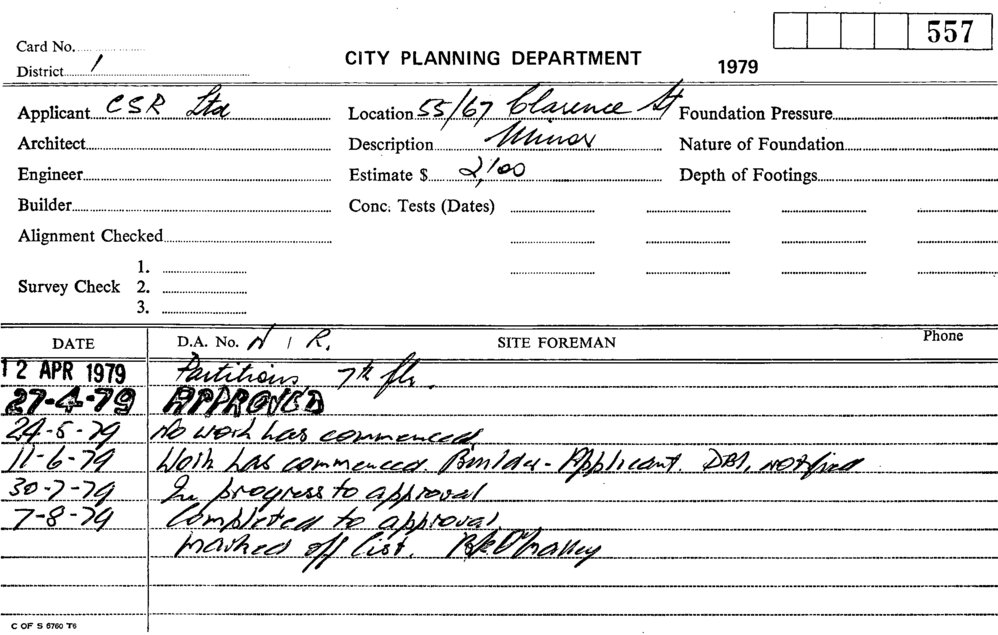 557
Card No.
CITY PLANNING DEPARTMENT 1979
District 1
Applicant CSR Ltd Location 55/67 Clarence St Foundation Pressure
Architect Description Minor Nature of Foundation
Engineer Estimate $ 2,100 Depth of Footings
Builder Conc. Tests (Dates)
Alignment Checked
1.
Survey Check 2.
3.
DATE D.A. No. N I R. SITE FOREMAN Phone
12 APR 1979 Partitions 7th flr.
27-4-79 APPROVED
24-5-79 No work has commenced
11-6-79 Work has commenced. Builder - Applicant. DBI, notified
30-7-79 In progress to approval
7-8-79 Completed to approval,
marked off list.
C OF S 6760 T6